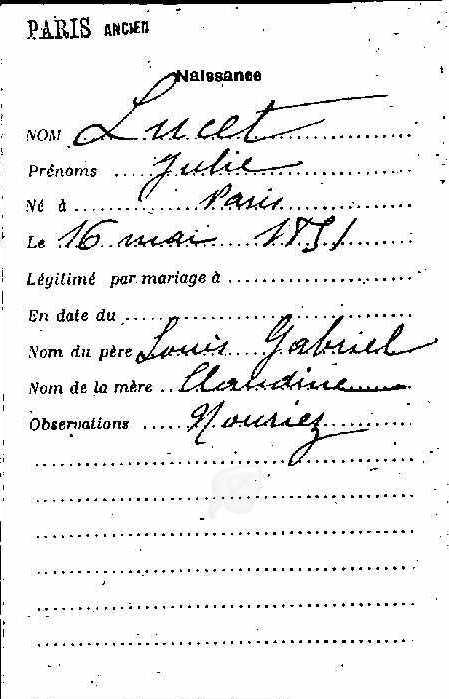 PARIS ANCIEN
Naissance
NOM Lucet
Prénoms Julie
Né à Paris
Le 16 mai 1851
Légitimé par mariage à
En date du
Nom du père Louis Gabriel
Nom de la mère Claudine
Observations Nouriez